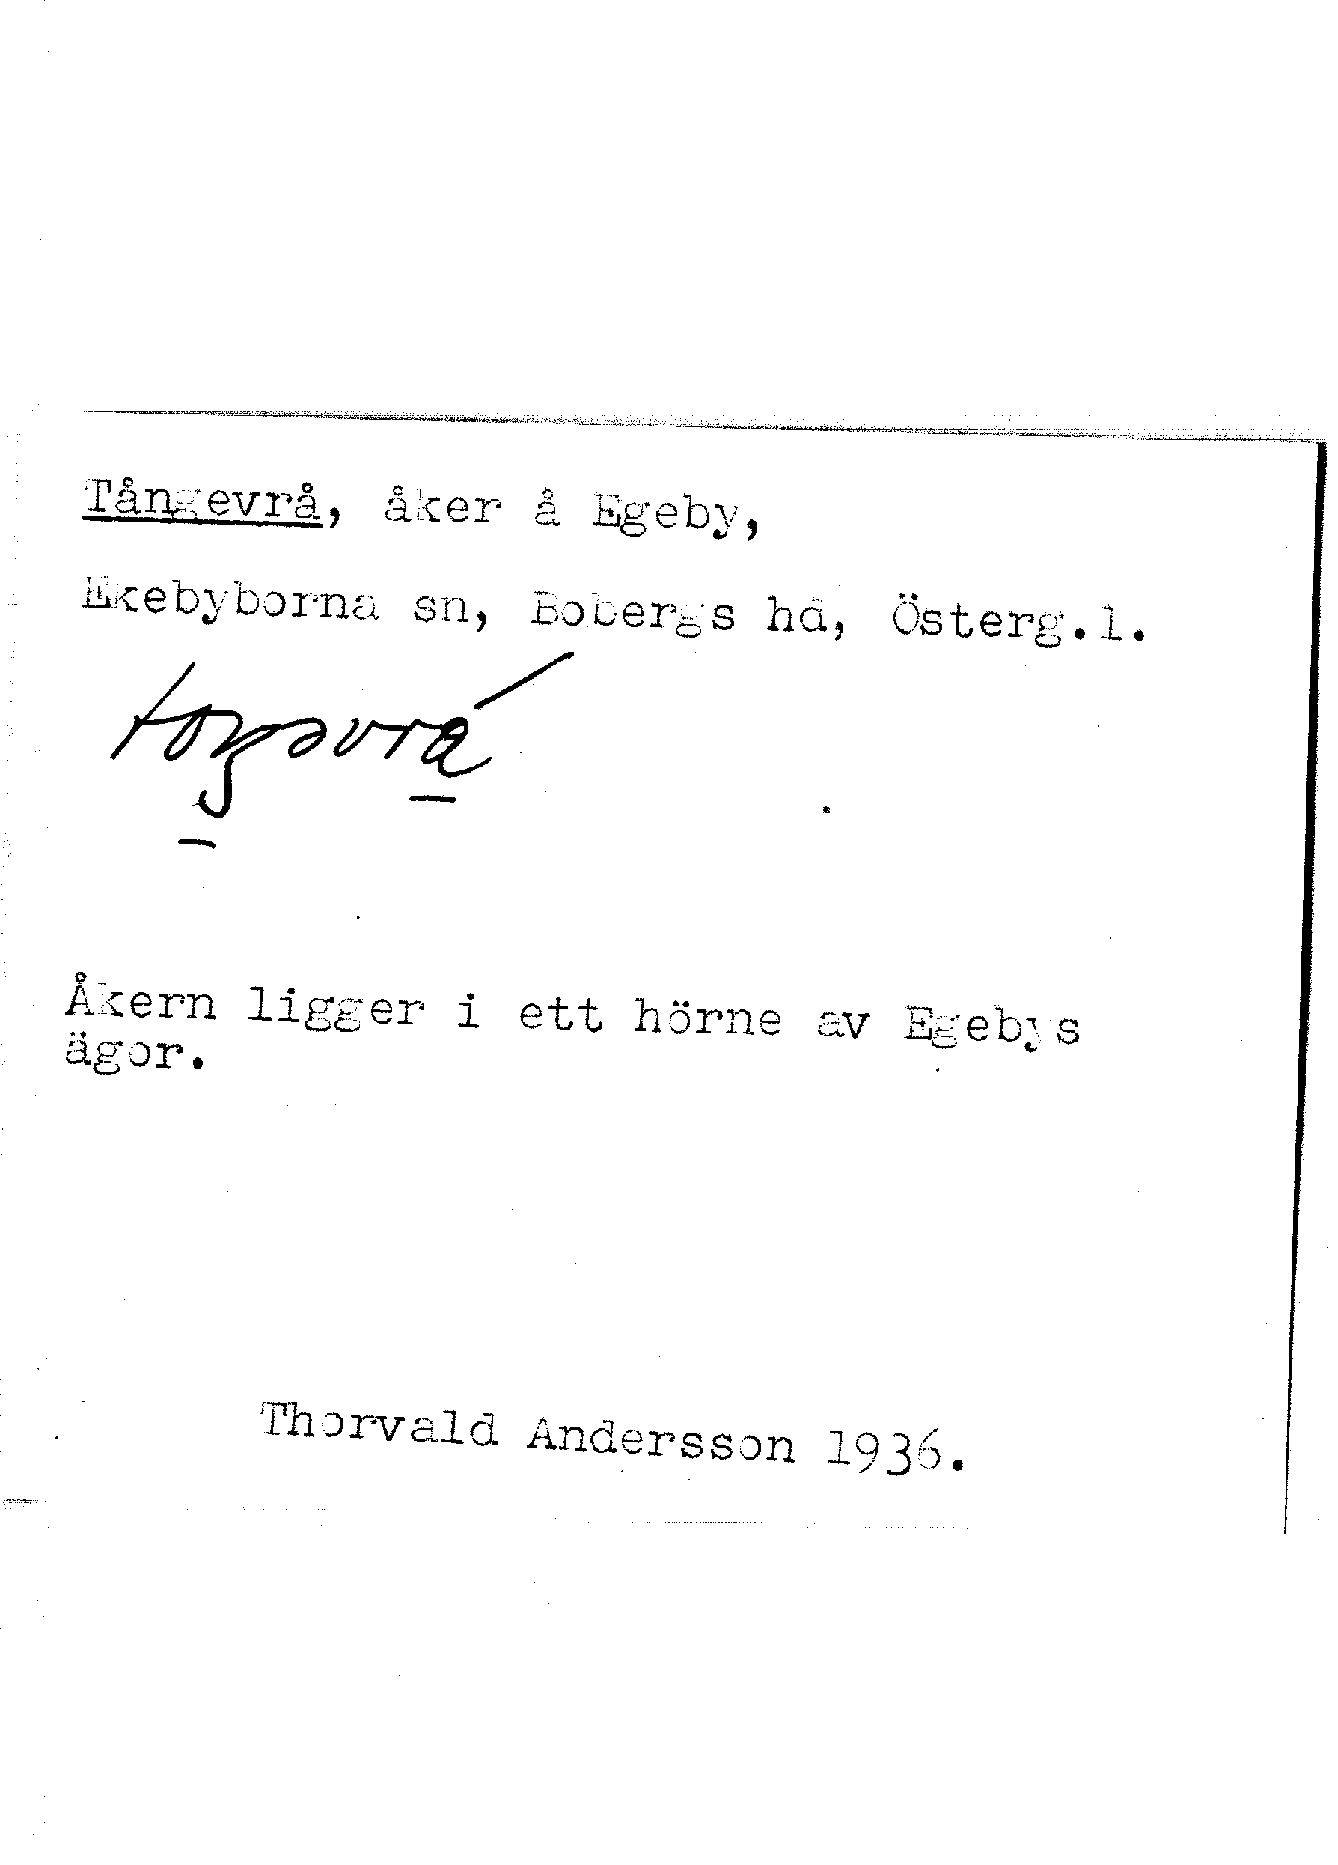 Tångevrå, åker å Egeby,
Ekebyborna sn, Bobergs hd, Österg.l.
Åkern ligger i ett hörne av Egebys
ägor.
Thorvald Andersson 1936.